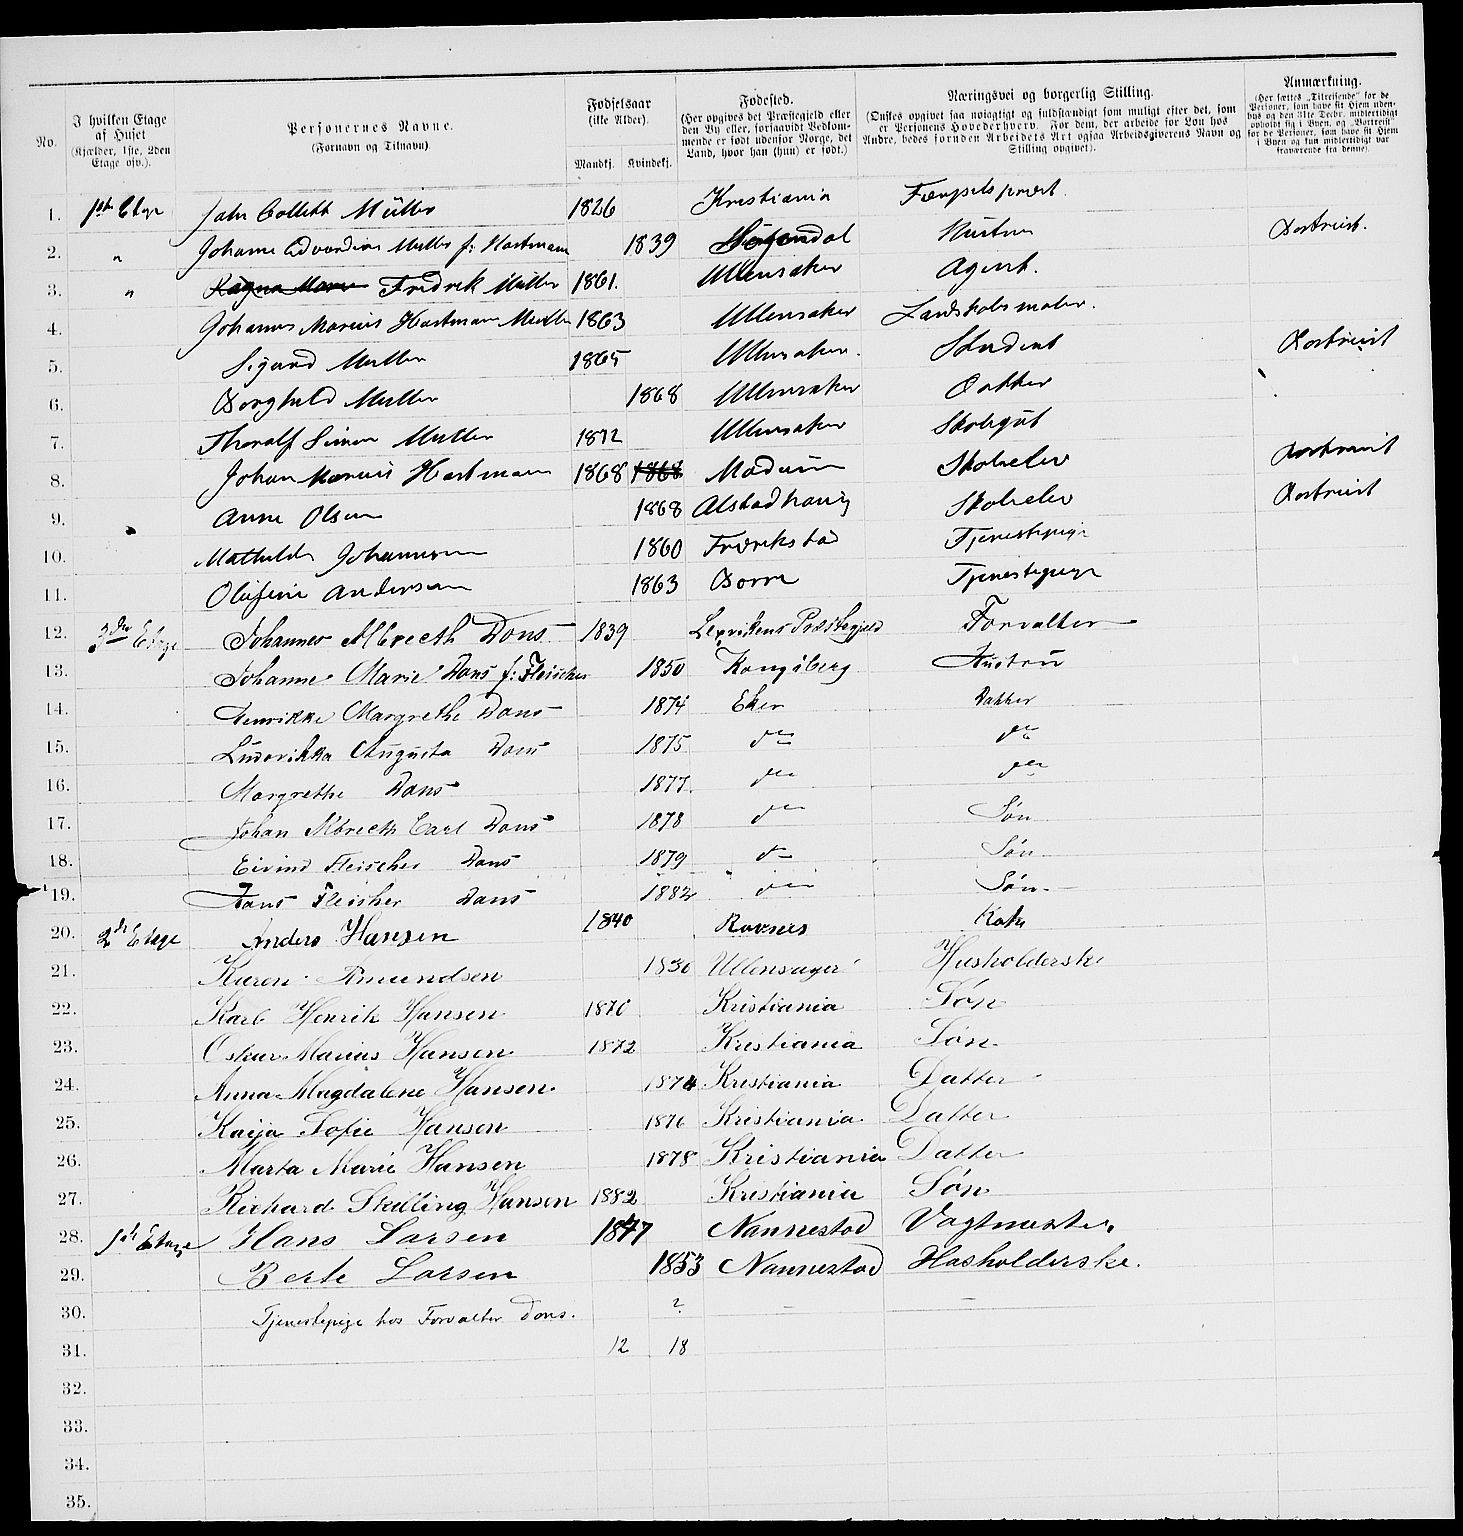 No. I hvilken Etage af Huset (Kjælder, 1ste, 2den Etage osv.). Personernes Navne. (Fornavn og Tilnavn). Fødselsaar (ikke Alder). Mandkj. Kvindekj. Fødested. (Her opgives det Præstegjeld eller den By eller, forsaavidt Vedkommende er født udenfor Norge, det Land, hvor han (hun) er født.) Næringsvei og borgerlig Stilling. (Ønskes opgivet saa nøiagtigt og fuldstændigt som muligt efter det, som er Personens Hovederhverv. For dem, der arbeide for Løn hos Andre, bedes foruden Arbeidets Art ogsaa Arbeidsgiverens Navn og Stilling opgivet). Anmærkning. (Her sættes „Tilreisende" for de Personer, som have sit Hjem udenbys og den 31te Decbr. midlertidigt opholdt sig i Byen, og „Bortreist" for de Personer, som have sit Hjem i Byen og kun midlertidigt var fraværende fra denne).
1. 1ste Etage Jahn Collett Müller 1826 Kristiania Fængselsprest
2. " Johanne Edvardine Muller f: Hartmann 1839 Sogndal Hustru Bortreist.
3. " Ragna Marie Fredrik Müller 1861. Ullensaker Agent.
4. Johannes Marius Hartmann Muller 1863 Ullensaker Landskabsmaler.
5. Sigurd Muller 1865 Ullensaker. Student Bortreist
6. Borghild Muller 1868 Ullensaker Datter
7. Thoralf Simon Muller 1872 Ullensaker Skolegut
8. Johan Marius Hartmann 1868 1868 Modum Skoleelev Bortreist
9. Anne Olsen 1868 Alstadhaug Skoleelev Bortreist
10. Mathilde Johannesen 1860 Fredrikstad Tjenestepige
11. Olefine Andersen 1863 Borre Tjenestepige
12. 3die Etage Johannes Albrecth Dons 1839 Lexvikens Præstegjeld Forvalter
13. Johanne Marie Dons f: Fleischer 1850 Kongsberg Hustru
14. Henrikke Margrethe Dons 1874 Eker Datter
15. Ludovikka Augusta Dons 1875 do do
16. Margrethe Dons 1877. do do
17. Johan Albrecth Carl Dons 1878 do Søn
18. Eivind Fleischer Dons 1879 do Søn
19. Hans Fleisher Dons 1882 do Søn
20. 2de Etage Anders Hansen 1840 Ravnes Kok
21. Karen Amundsen 1830 Ullensager Husholderske
22. Karl Henrik Hansen 1870 Kristiania Søn
23. Oskar Marius Hansen 1872 Kristiania Søn
24. Anna Magdalene Hansen. 1874 Kristiania Datter
25. Kaija Sofie Hansen 1876 Kristiania Datter
26. Marta Marie Hansen 1878 Kristiania Datter
27. Richard Skilling Hansen 1882 Kristiania Søn
28. 1ste Etage Hans Larsen 1847 Nannestad Vagtmester
29. Berte Larsen 1853 Nannestad Husholderske.
30. Tjenestepige hos Forvalter Dons. ? – –
31. 12 18
32.
33.
34.
35.